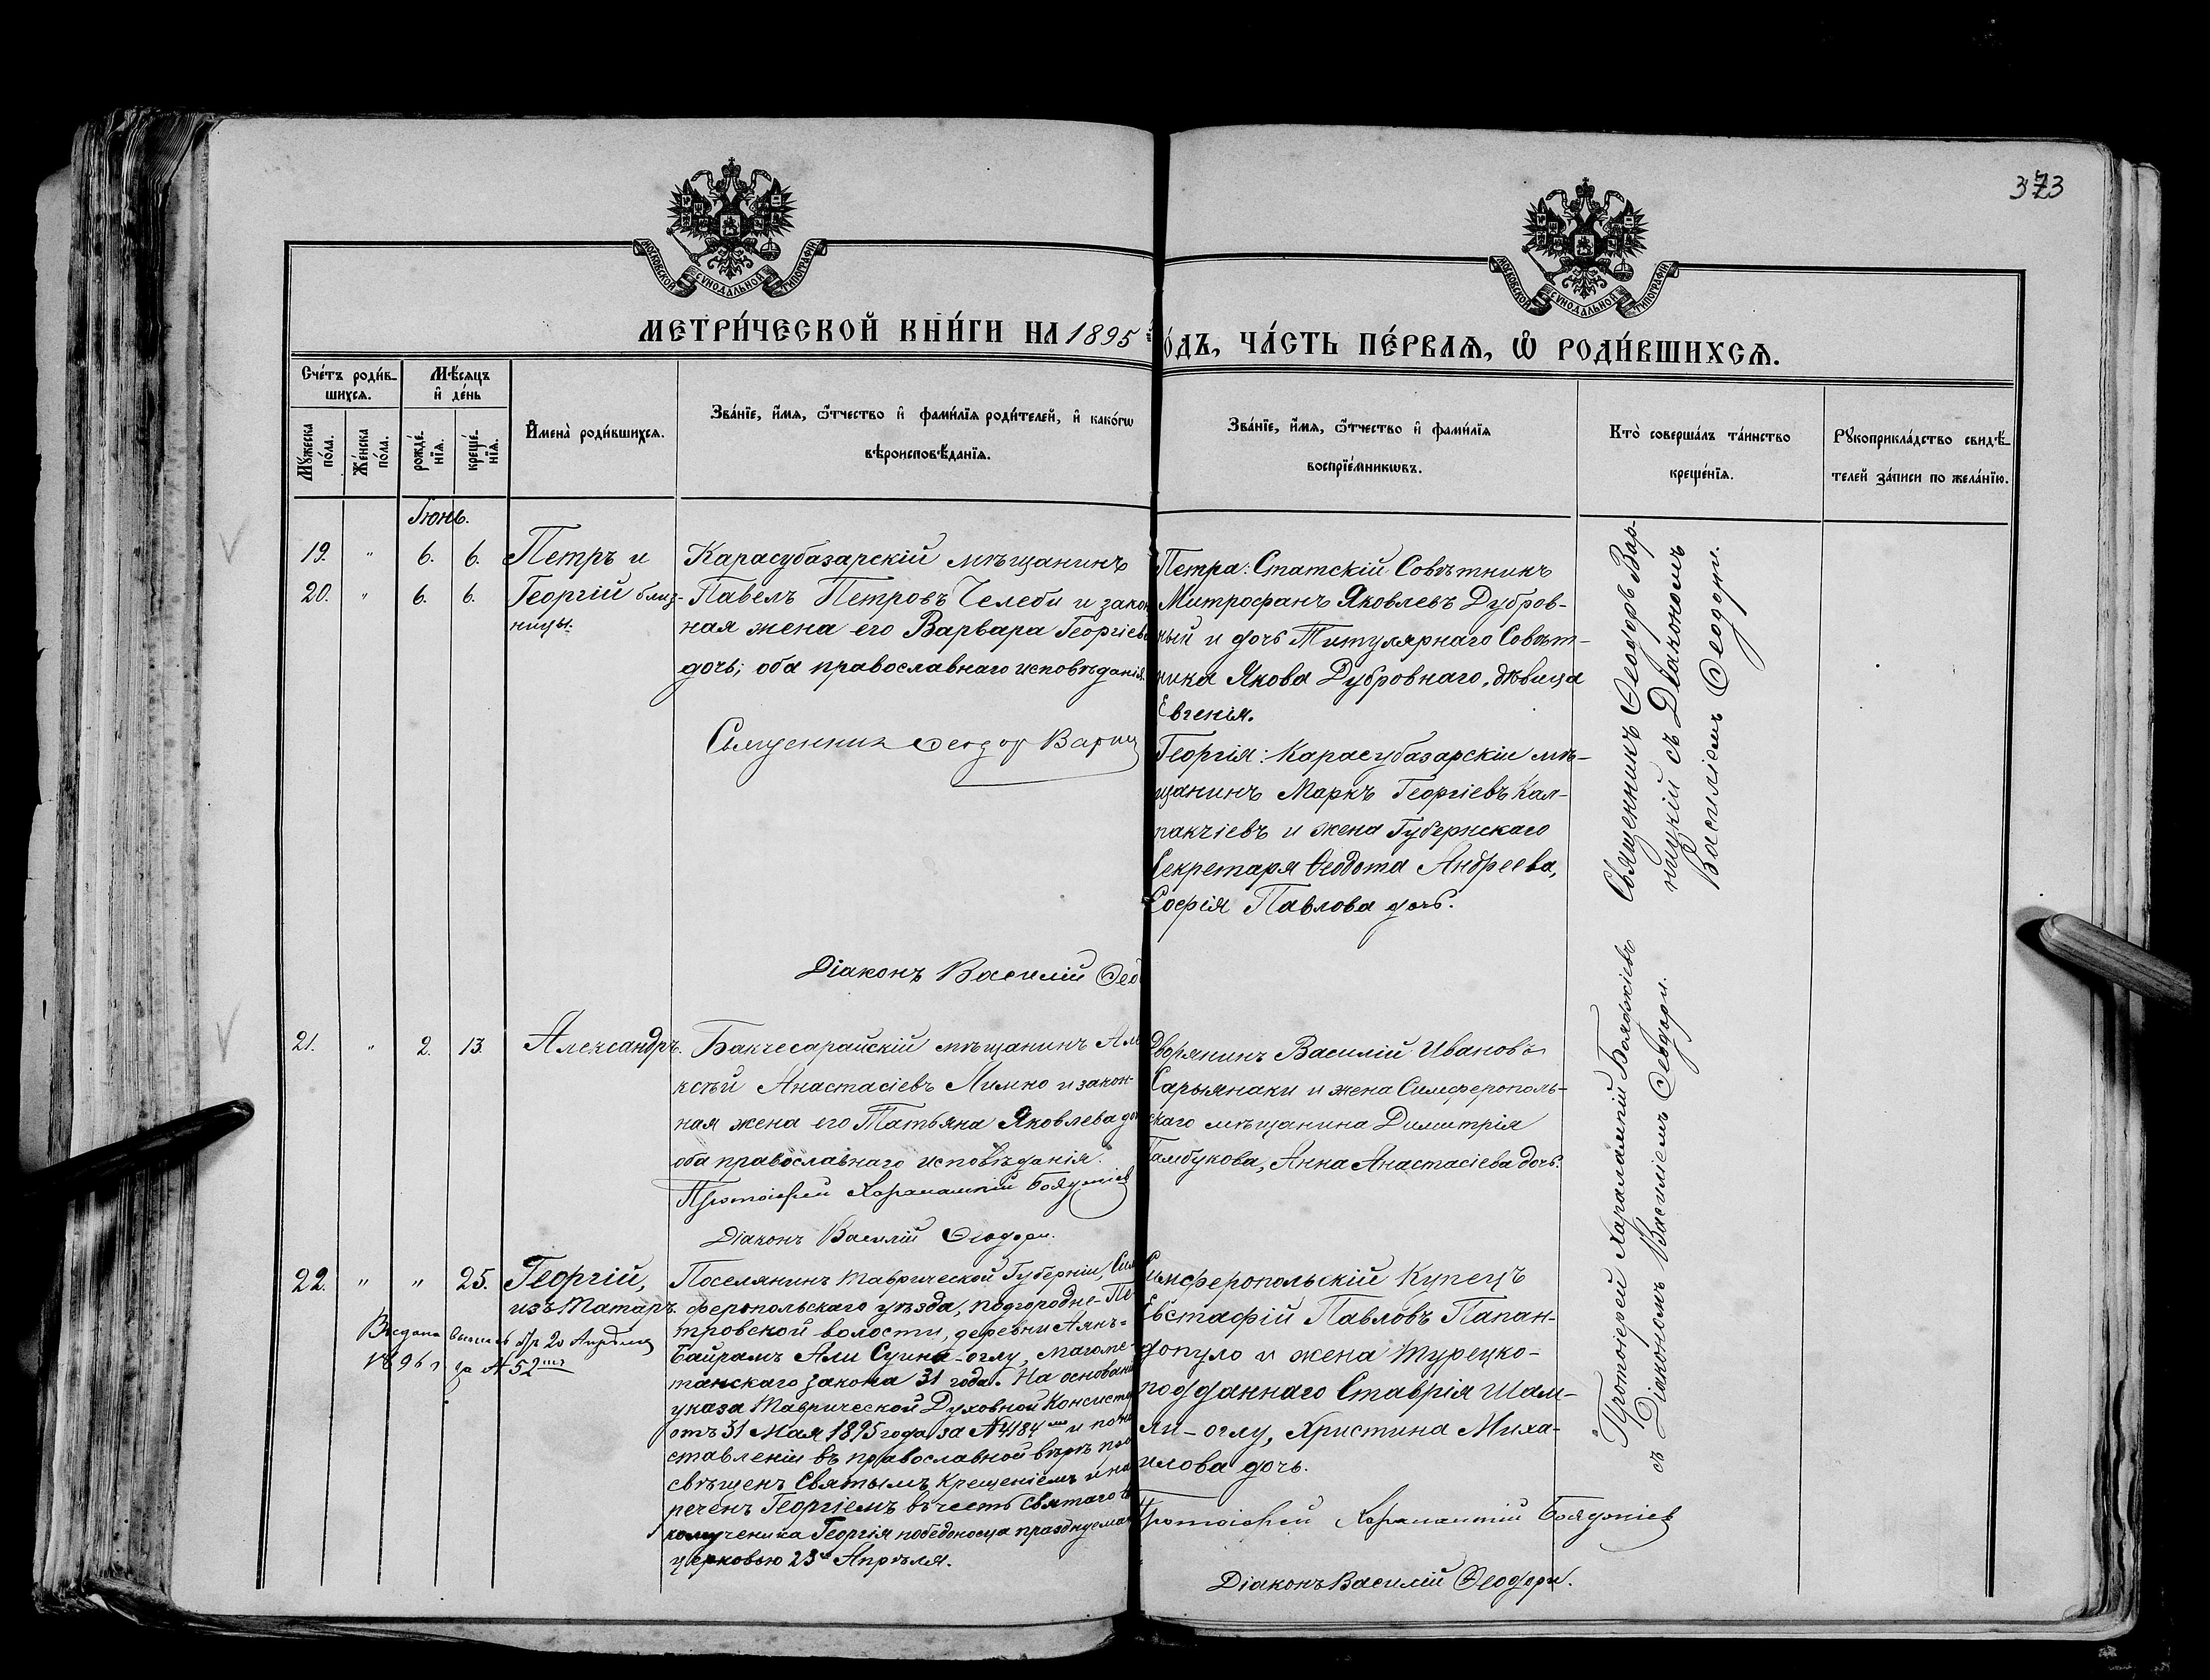 373
МОСКОВСКОЙ СУНОДАЛЬНОЙ ТИПОГРАФІИ
МОСКОВСКОЙ СУНОДАЛЬНОЙ ТИПОГРАФІИ
МЕТРИ́ЧЕСКОЙ КНИ́ГИ НА 1895 О́ДЪ, ЧА́СТЬ ПЕ́РВАѦ, Ѡ҆ РОДИ́ВШИХСѦ.
Сче́тъ роди́в-
шихсѧ.
Мѣ́сѧцъ
и҆ де́нь
Мꙋ́жеска
по́ла.
Же́нска
по́ла.
рожде́-
нїѧ.
креще́-
нїѧ.
И҆мена̀ роди́вшихсѧ.
Зва́нїе, и҆́мѧ, ѻ҆́тчество и҆ фами́лїѧ роди́телей, и҆ како́гѡ
вѣроисповѣ́данїѧ.
Зва́нїе, и҆́мѧ, ѻ҆́тчество и҆ фами́лїѧ
воспрїе́мникѡвъ.
Кто̀ соверша́лъ та́инство
креще́нїѧ.
Рꙋкоприкла́дство свидѣ́-
телей за́писи по жела́нїю.
Іюнь.
19. " 6. 6. Петръ и
20. " 6. 6. Георгій близ-
ницы.
Карасубазарскій мѣщанинъ
Павелъ Петровъ Челеби и закон
ная жена его Варвара Георгіева
дочь; оба православнаго исповѣданія.
Священник Феодор Варниц
Петра: Статскій Совѣтникъ
Митрофанъ Яковлевъ Дубров-
ный и дочь Титулярнаго Совѣт-
ника Якова Дубровнаго, дѣвица
Евгенія.
Георгія: Карасубазарскіе мѣ-
щанинъ Маркъ Георгіевъ Кал-
пакчіевъ и жена Губернскаго
Секретаря Ѳеодота Андреева,
Софія Павлова дочь.
Священникъ Ѳеодоръ Вар-
ницкій съ Діакономъ
Василіемъ Ѳеодори.
Діаконъ Василій Ѳеод
21. " 2. 13. Александръ.
Бакчесарайскій мѣщанинъ Але
ксѣй Анастасіевъ Лимно и закон-
ная жена его Татьяна Яковлева доч
оба православнаго исповѣданія.
Протоіерей Харалампій Бояджіев
Діаконъ Василій Ѳеодори.
Дворянинъ Василій Ивановъ
Сарыянаки и жена Симферополь-
скаго мѣщанина Димитрія
Тамбукова, Анна Анастасіева дочь.
22. " " 25. Георгій,
изъ Татаръ.
Выдана выпись 20 Апрѣля
1896 г за № 52
Поселянинъ Таврической Губерніи, Сим
феропольскаго уѣзда, подгородне-Пе
тровской волости, деревни Аянъ-
Байрамъ Али Суина-оглу, магоме-
танскаго закона 31 года. На основаніи
указа Таврической Духовной Консисто
отъ 31 Мая 1895 года за № 4184 и по на
ставленіи въ православной вѣрѣ про
свѣщенъ Святымъ Крещеніемъ и на
реченъ Георгіемъ въ честь Святаго Ве
комученика Георгія победоносца празднуемаг
церковью 23 Апрѣля.
Симферопольскій Купецъ
Евстафій Павловъ Папан-
допуло и жена Турецко-
подданнаго Ставрія Шам-
ли-оглу, Христина Миха-
илова дочь.
Протоіерей Харалампій Бояджіев
Діаконъ Василій Ѳеодори.
Протоіерей Харалампій Бояджіевъ
съ Діакономъ Василіемъ Ѳеодори.